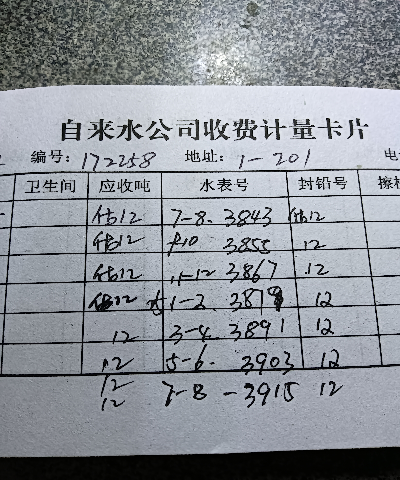 自来水公司收费计量卡片
编号: 172258 地址: 1-201
卫生间 应收吨 水表号 封铅号
估12 7-8. 3843 估12
估12 9-10 3855 12
估12 11-12 3867 12
估12 1-2. 3879 12
12 3-4. 3891 12
12 5-6. 3903 12
12
12 7-8 - 3915 12